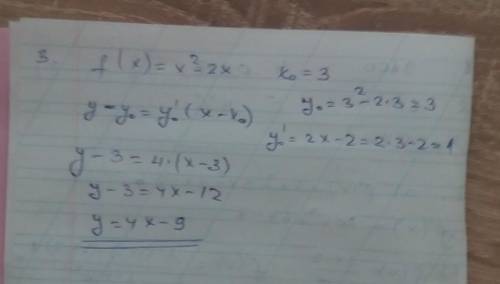 3. f(x) = x²-2x x₀ = 3
y-y₀ = y₀'(x-x₀) y₀ = 3²-2·3 = 3
y₀' = 2x-2 = 2·3-2 = 4
y-3 = 4·(x-3)
y-3 = 4x-12
y = 4x-9